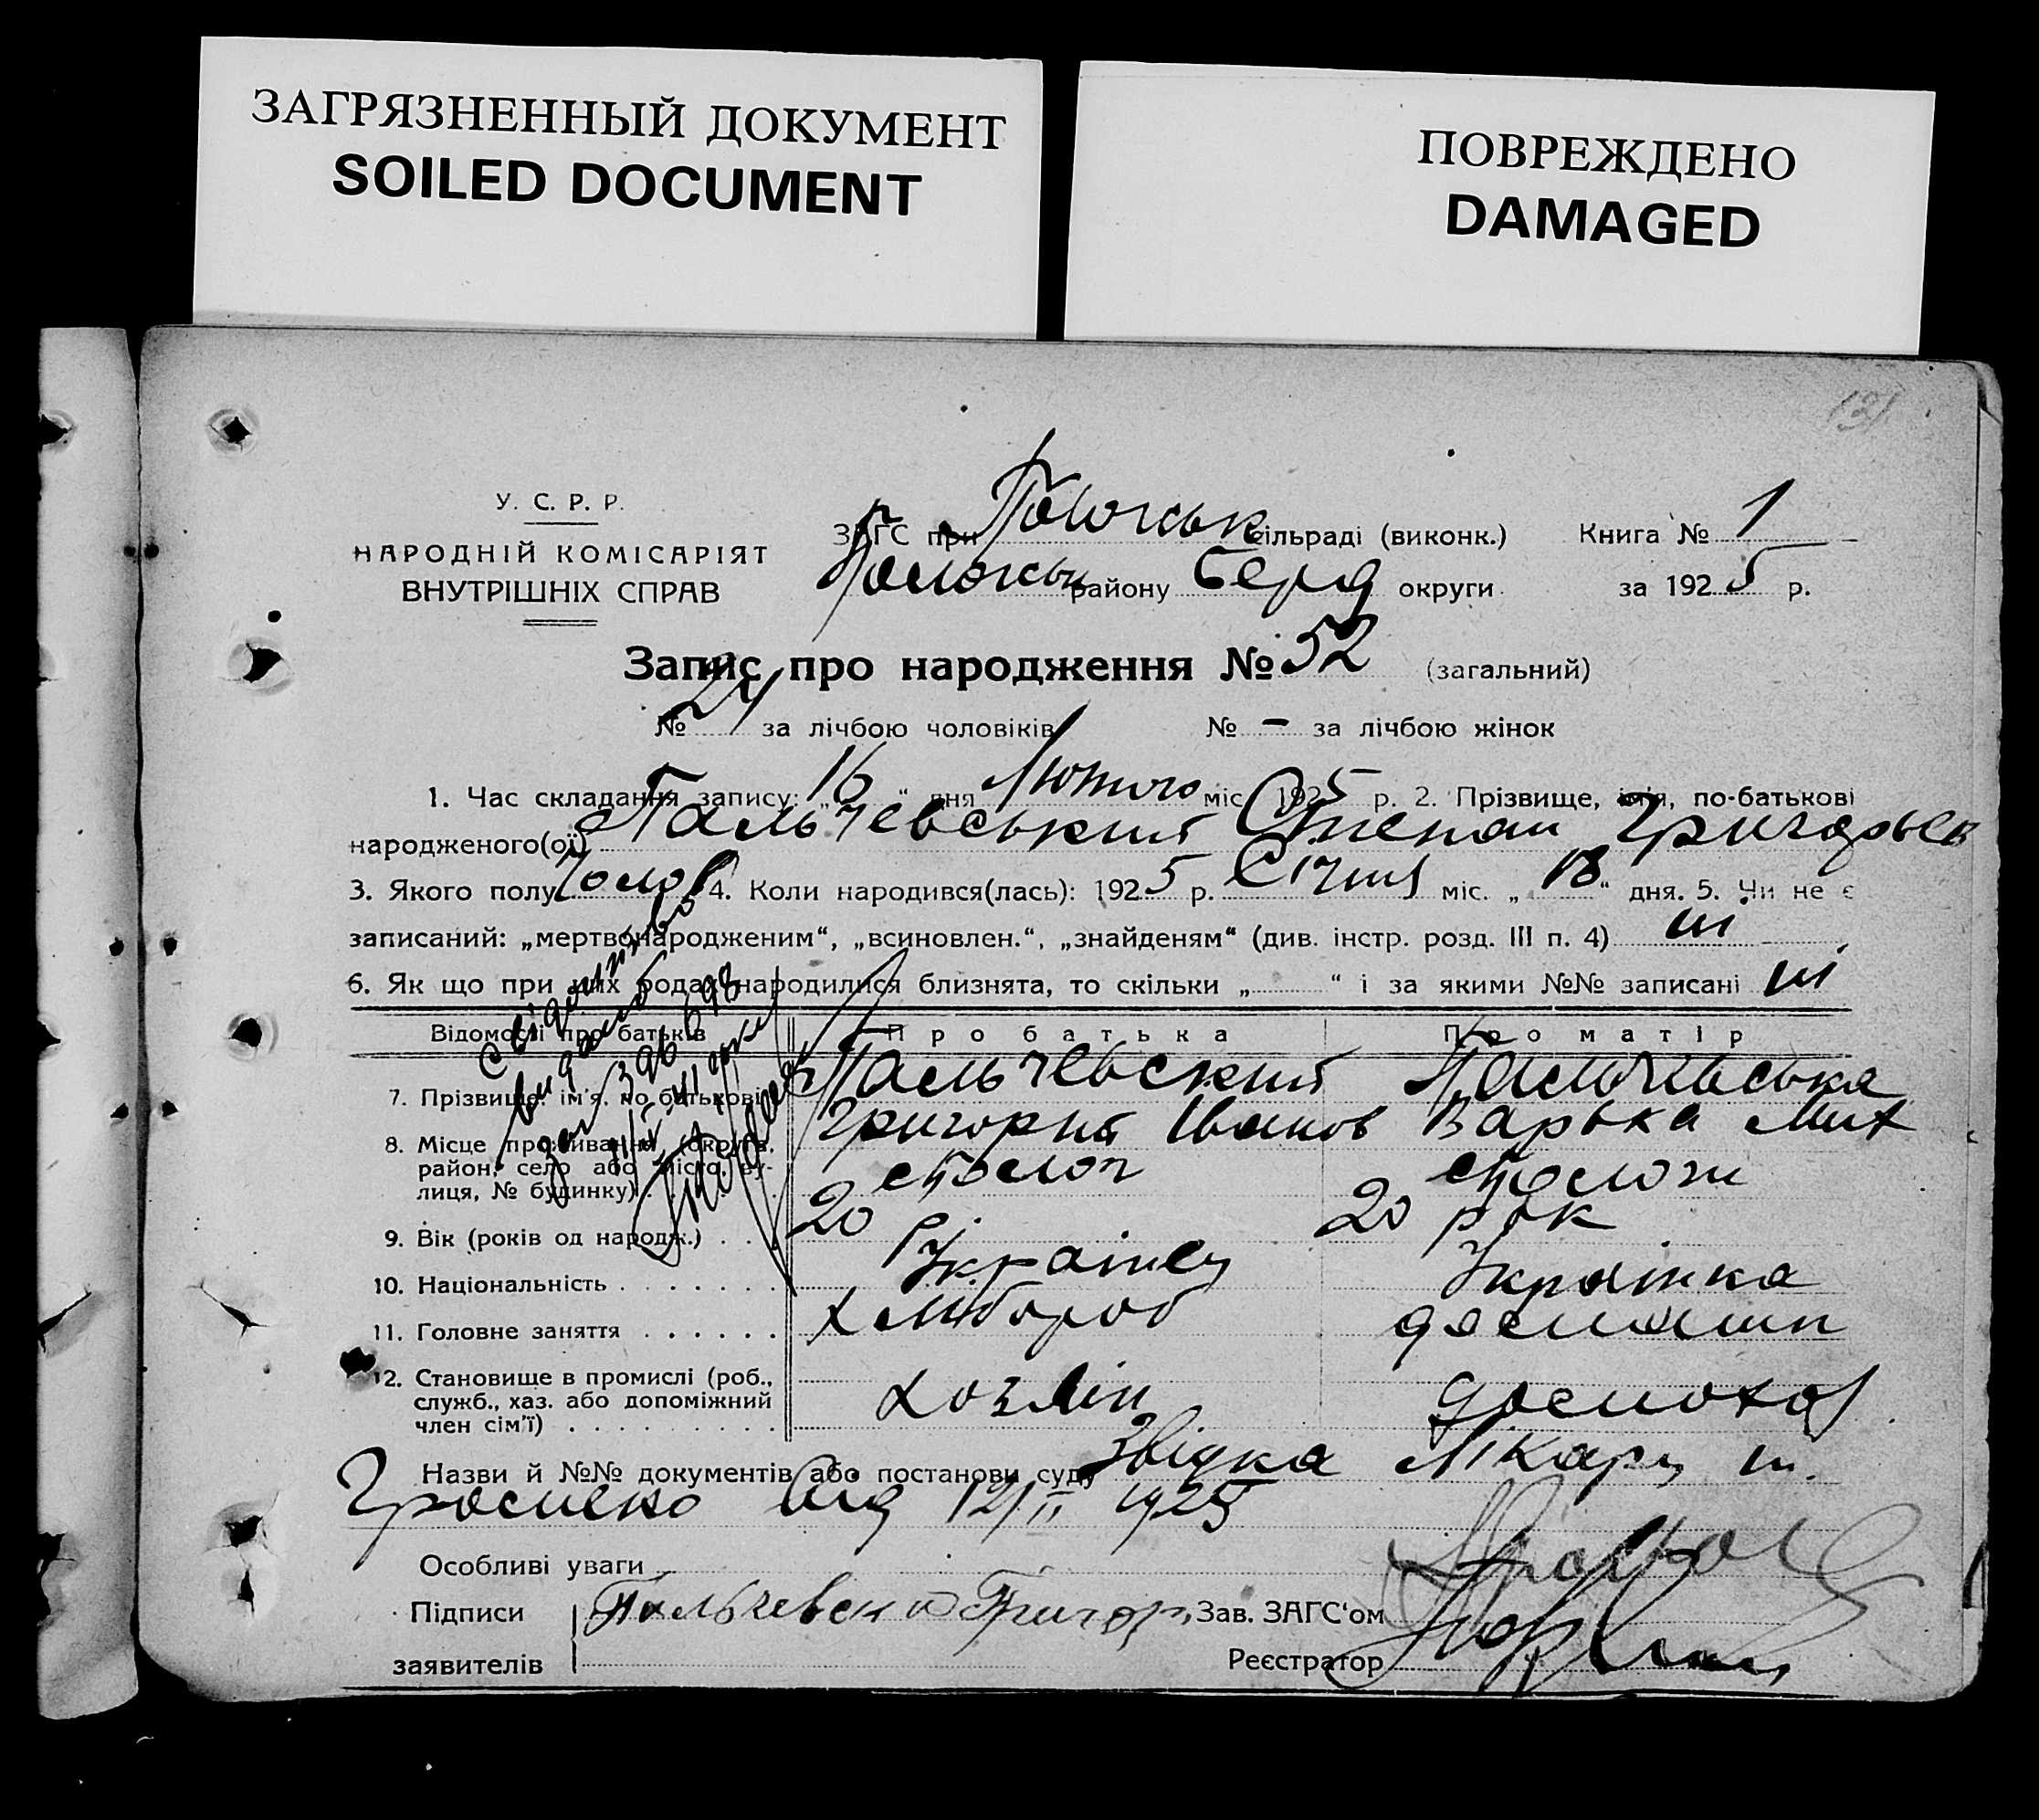 ЗАГРЯЗНЕННЫЙ ДОКУМЕНТ
SOILED DOCUMENT
ПОВРЕЖДЕНО
DAMAGED
У. С. Р. Р.
НАРОДНІЙ КОМІСАРІЯТ
ВНУТРІШНІХ СПРАВ
ЗАГС при сільраді (виконк.) Книга № 1
району Берд округи за 1925 р.
Запис про народження № 52 (загальний)
№ 24 за лічбою чоловіків № – за лічбою жінок
1. Час складання запису: „16“ дня Лютого міс. 1925 р. 2. Прізвище, ім'я, по-батькові
народженого(ої) Пальчевський Степан Григорьев
3. Якого полу Чолов 4. Коли народився(лась): 1925 р. Січня міс. „18“ дня. 5. Чи не є
записаний: „мертвонародженим“, „всиновлен.“, „знайденям“ (див. інстр. розд. III п. 4) ні
6. Як що при цих родах народилися близнята, то скільки „ “ і за якими №№ записані ні
Відомості про батьків Про батька Про матір
7. Прізвище, ім'я, по батькові Пальчевский Пальчевська
Григорий Иванов Варька Мих
8. Місце проживання (округа,
район, село або місто, ву-
лиця, № будинку) . Пологи
9. Вік (років од народж.) . . . 20 р 20 рок
10. Національність . . . . . . . Українец Українка
11. Головне заняття . . . . . . Хлібороб
12. Становище в промислі (роб.,
служб., хаз. або допоміжний
член сім'ї) . . . . . . . . .
Назви й №№ документів або постанови суду Звідка Лікарн
від 12/II 1925
Особливі уваги
Підписи Пальчевский Григор Зав. ЗАГС'ом
заявителів Реєстратор
Свідоцтво
видано